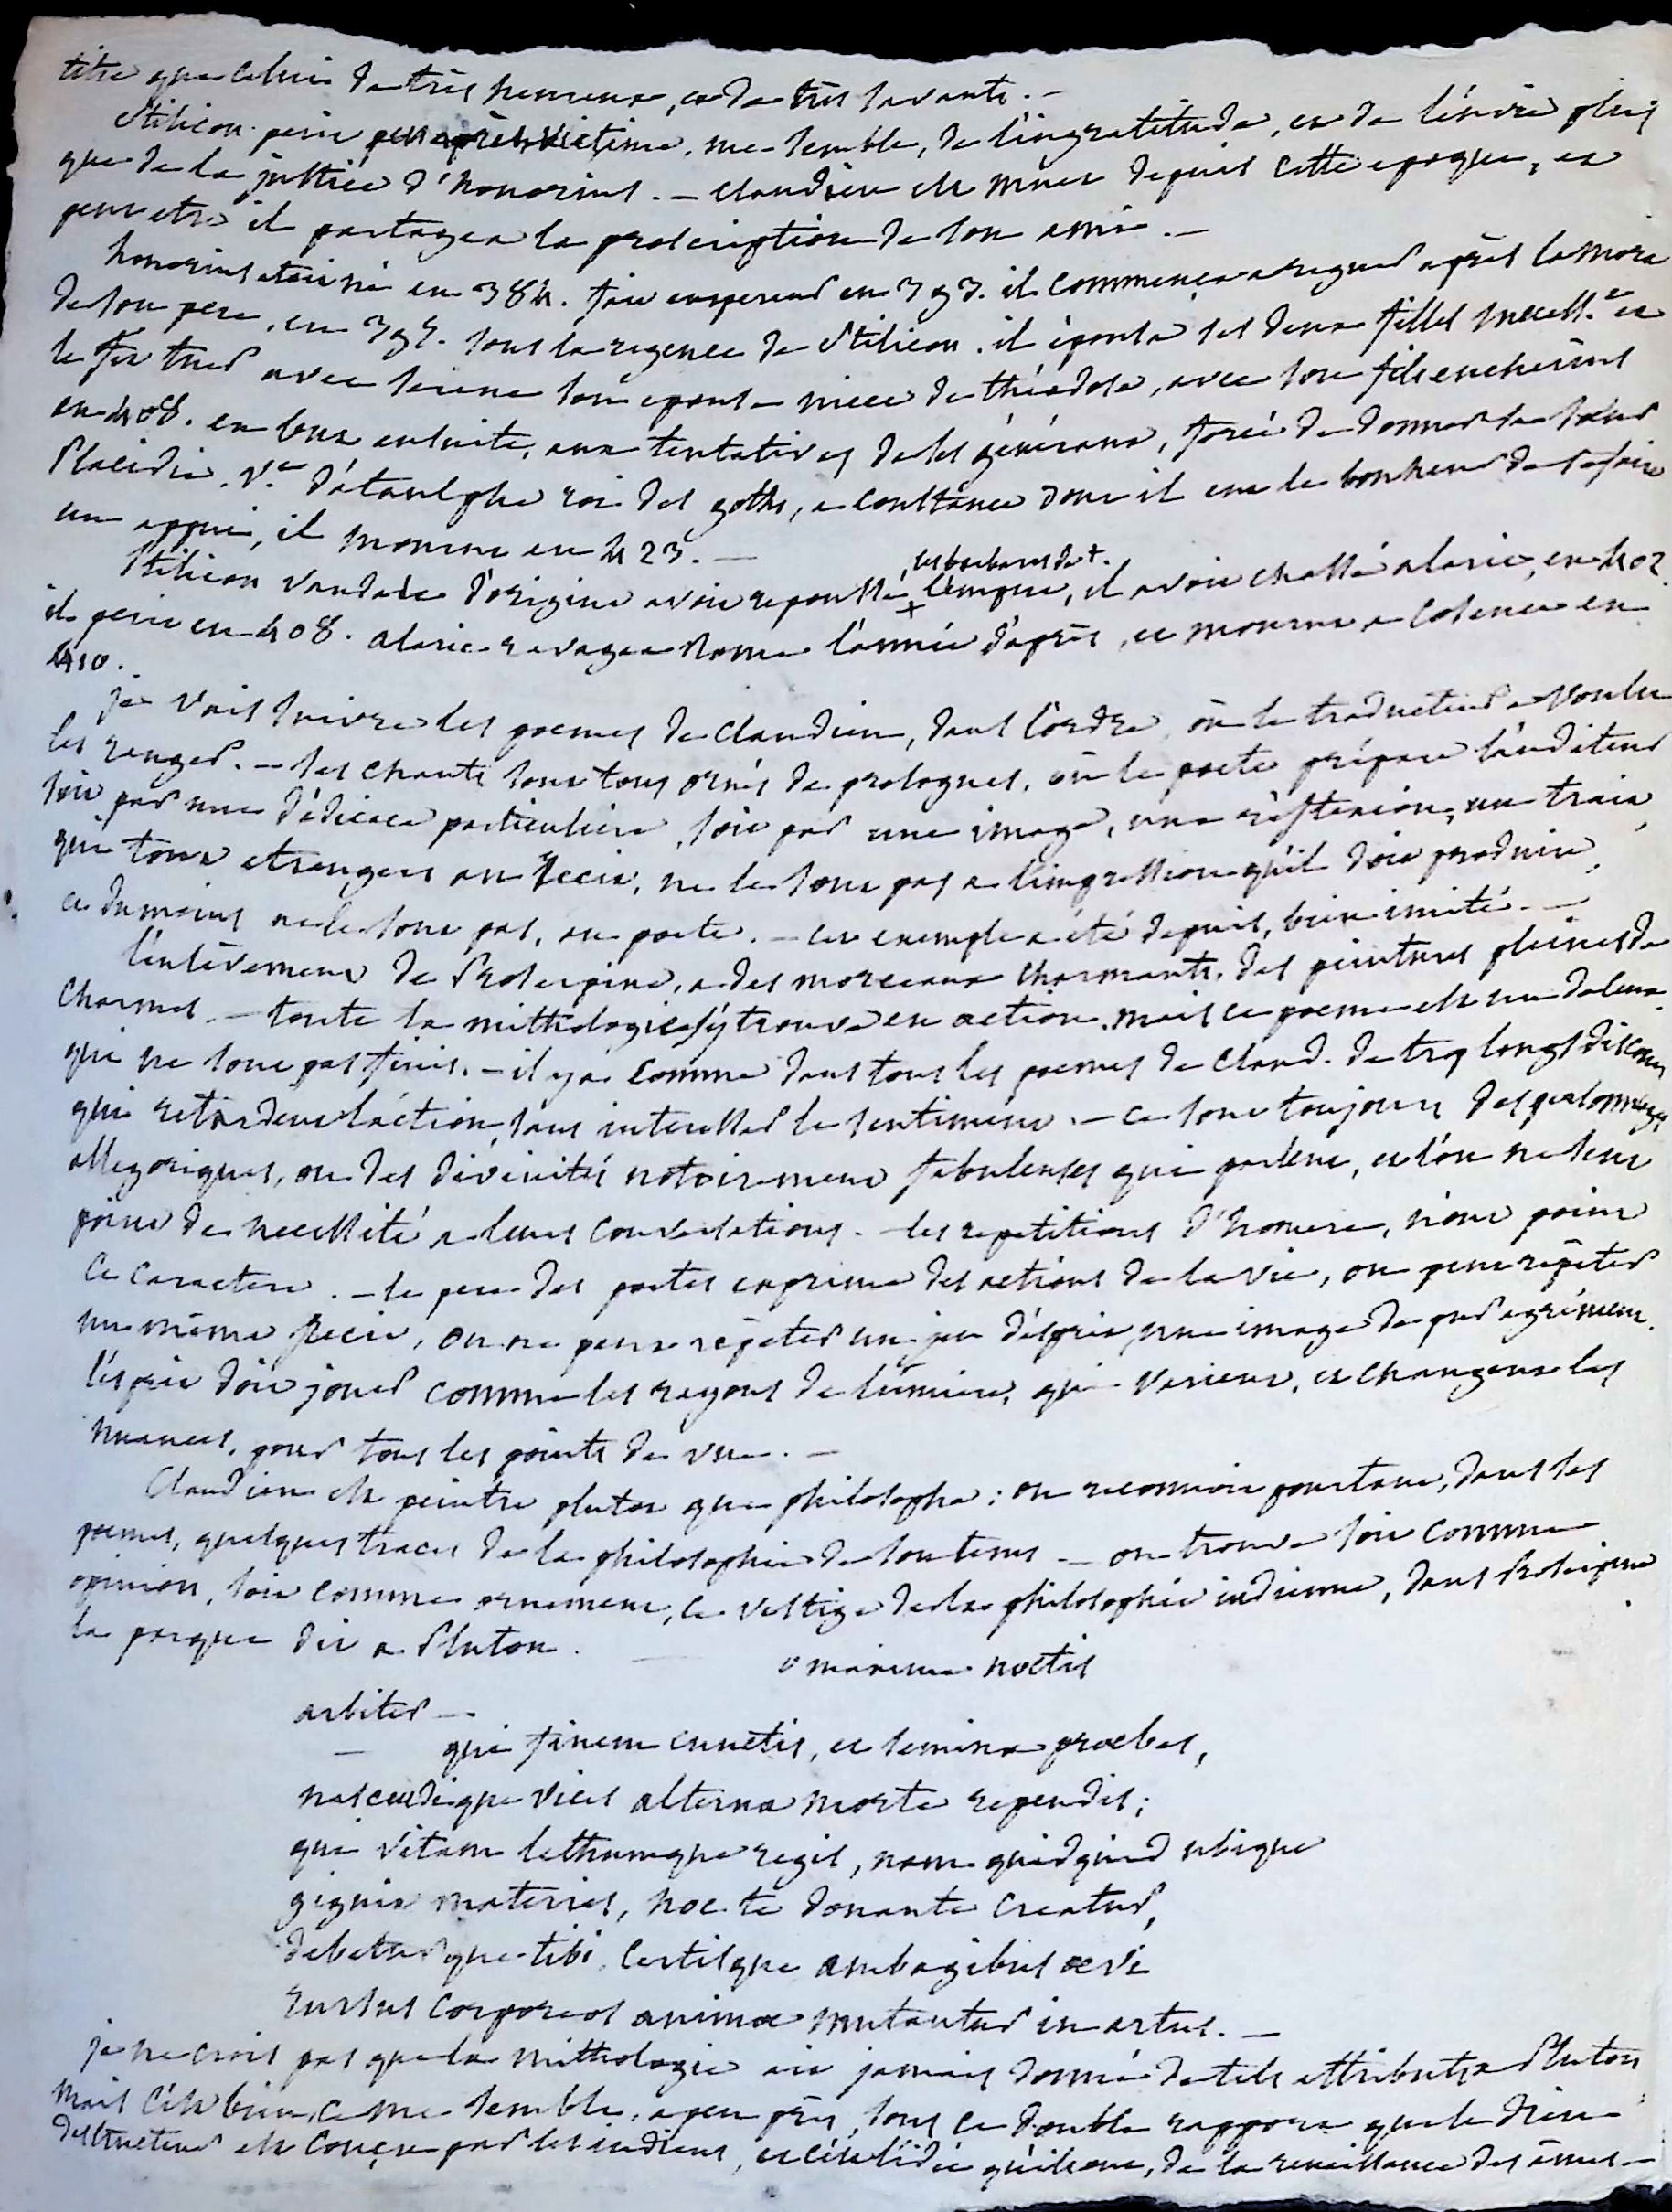 titre que celui de très heureux, et de très savants. —
Stilicon périt peu après victime, me semble, de l'ingratitude, et de l'envie plus
que de la justice d'honorius. — Claudien est muet depuis cette epoque, et
peut etre il partagea la proscription de son ami. —
honorius etoit né en 384. fait empereur en 393. il commença a regner après la mort
de son pere, en 395. sous la regence de Stilicon. il épousa ses deux filles success.t et
le fit tuer avec serene son epouse niece de théodose, avec son fils eucherius
en 408. en butte ensuite, aux tentatives de ses généraux, forcé de donner sa sœur
Placidie, v.e d'ataulphe roi des goths, a constance dont il eut le bonheur de se faire
un appui, il mourut en 423. —
les barbares de +.
Stilicon vandale d'origine avoit repoussé + l'empire, il avoit chassé alaric, en 402.
il périt en 408. alaric ravagea Rome l'année d'après, et mourut a Cosence en
410.
je vais suivre les poemes de Claudien, dans l'ordre où le traducteur a voulu
les ranger. — ses chants sont tous ornés de prologues, où le poete prépare l'auditeur
soit par une dédicace particuliere, soit par une image, une réflexion, un trait,
qui tout etrangers au recit, ne le sont pas a l'impression qu'il doit produire,
et du moins ne le sont pas, au poete. — cet exemple a été depuis, bien imité. —
l'enlèvement de Proserpine, a des morceaux charmants, des peintures pleines de
charmes. — toute la mithologie s'y trouve en action. mais ce poeme est un de ceux
qui ne sont pas finis. — il y a comme dans tous les poemes de Claud. de trop longs discours
qui retardent l'action, sans interesser le sentiment. — ce sont toujours des personnages
allegoriques, ou des divinités notoirement fabuleuses qui parlent, et l'on ne sent
point de necessité a leurs conversations. — les repetitions d'homere, n'ont point
ce caractere. — le pere des poetes exprime des actions de la vie, on peut répéter
un même recit, on ne peut répéter un jeu d'esprit, une image de pur agrément.
l'esprit doit jouer comme les rayons de lumiere, qui varient, et changent les
nuances, pour tous les points de vue. —
Claudien est peintre plutot que philosophe : on reconnoit pourtant, dans ses
poemes, quelques traces de la philosophie de son tems — on trouve soit comme
opinion, soit comme ornement, ce vestige de la philosophie indienne, dans Proserpine
la parque dit a Pluton.
o maxime noctis
arbiter —.
— qui finem cunctis, et semina proebes,
nascendique vices alterna morte rependis ;
qui vitam lethumque regis, nam quidquid ubique
gignit materies, hoc te donante creatur,
debeturque tibi, certisque ambagibus œvi
rursus corporeos animœ mutantur in artus. —
je ne crois pas que la mithologie ait jamais donné de tels attributs a Pluton
mais c'est bien, ce me semble, a peu près, sous ce double rapport que le dieu
destructeur est conçu par les indiens, et c'est l'idée qu'ils ont, de la renaissance des âmes. —